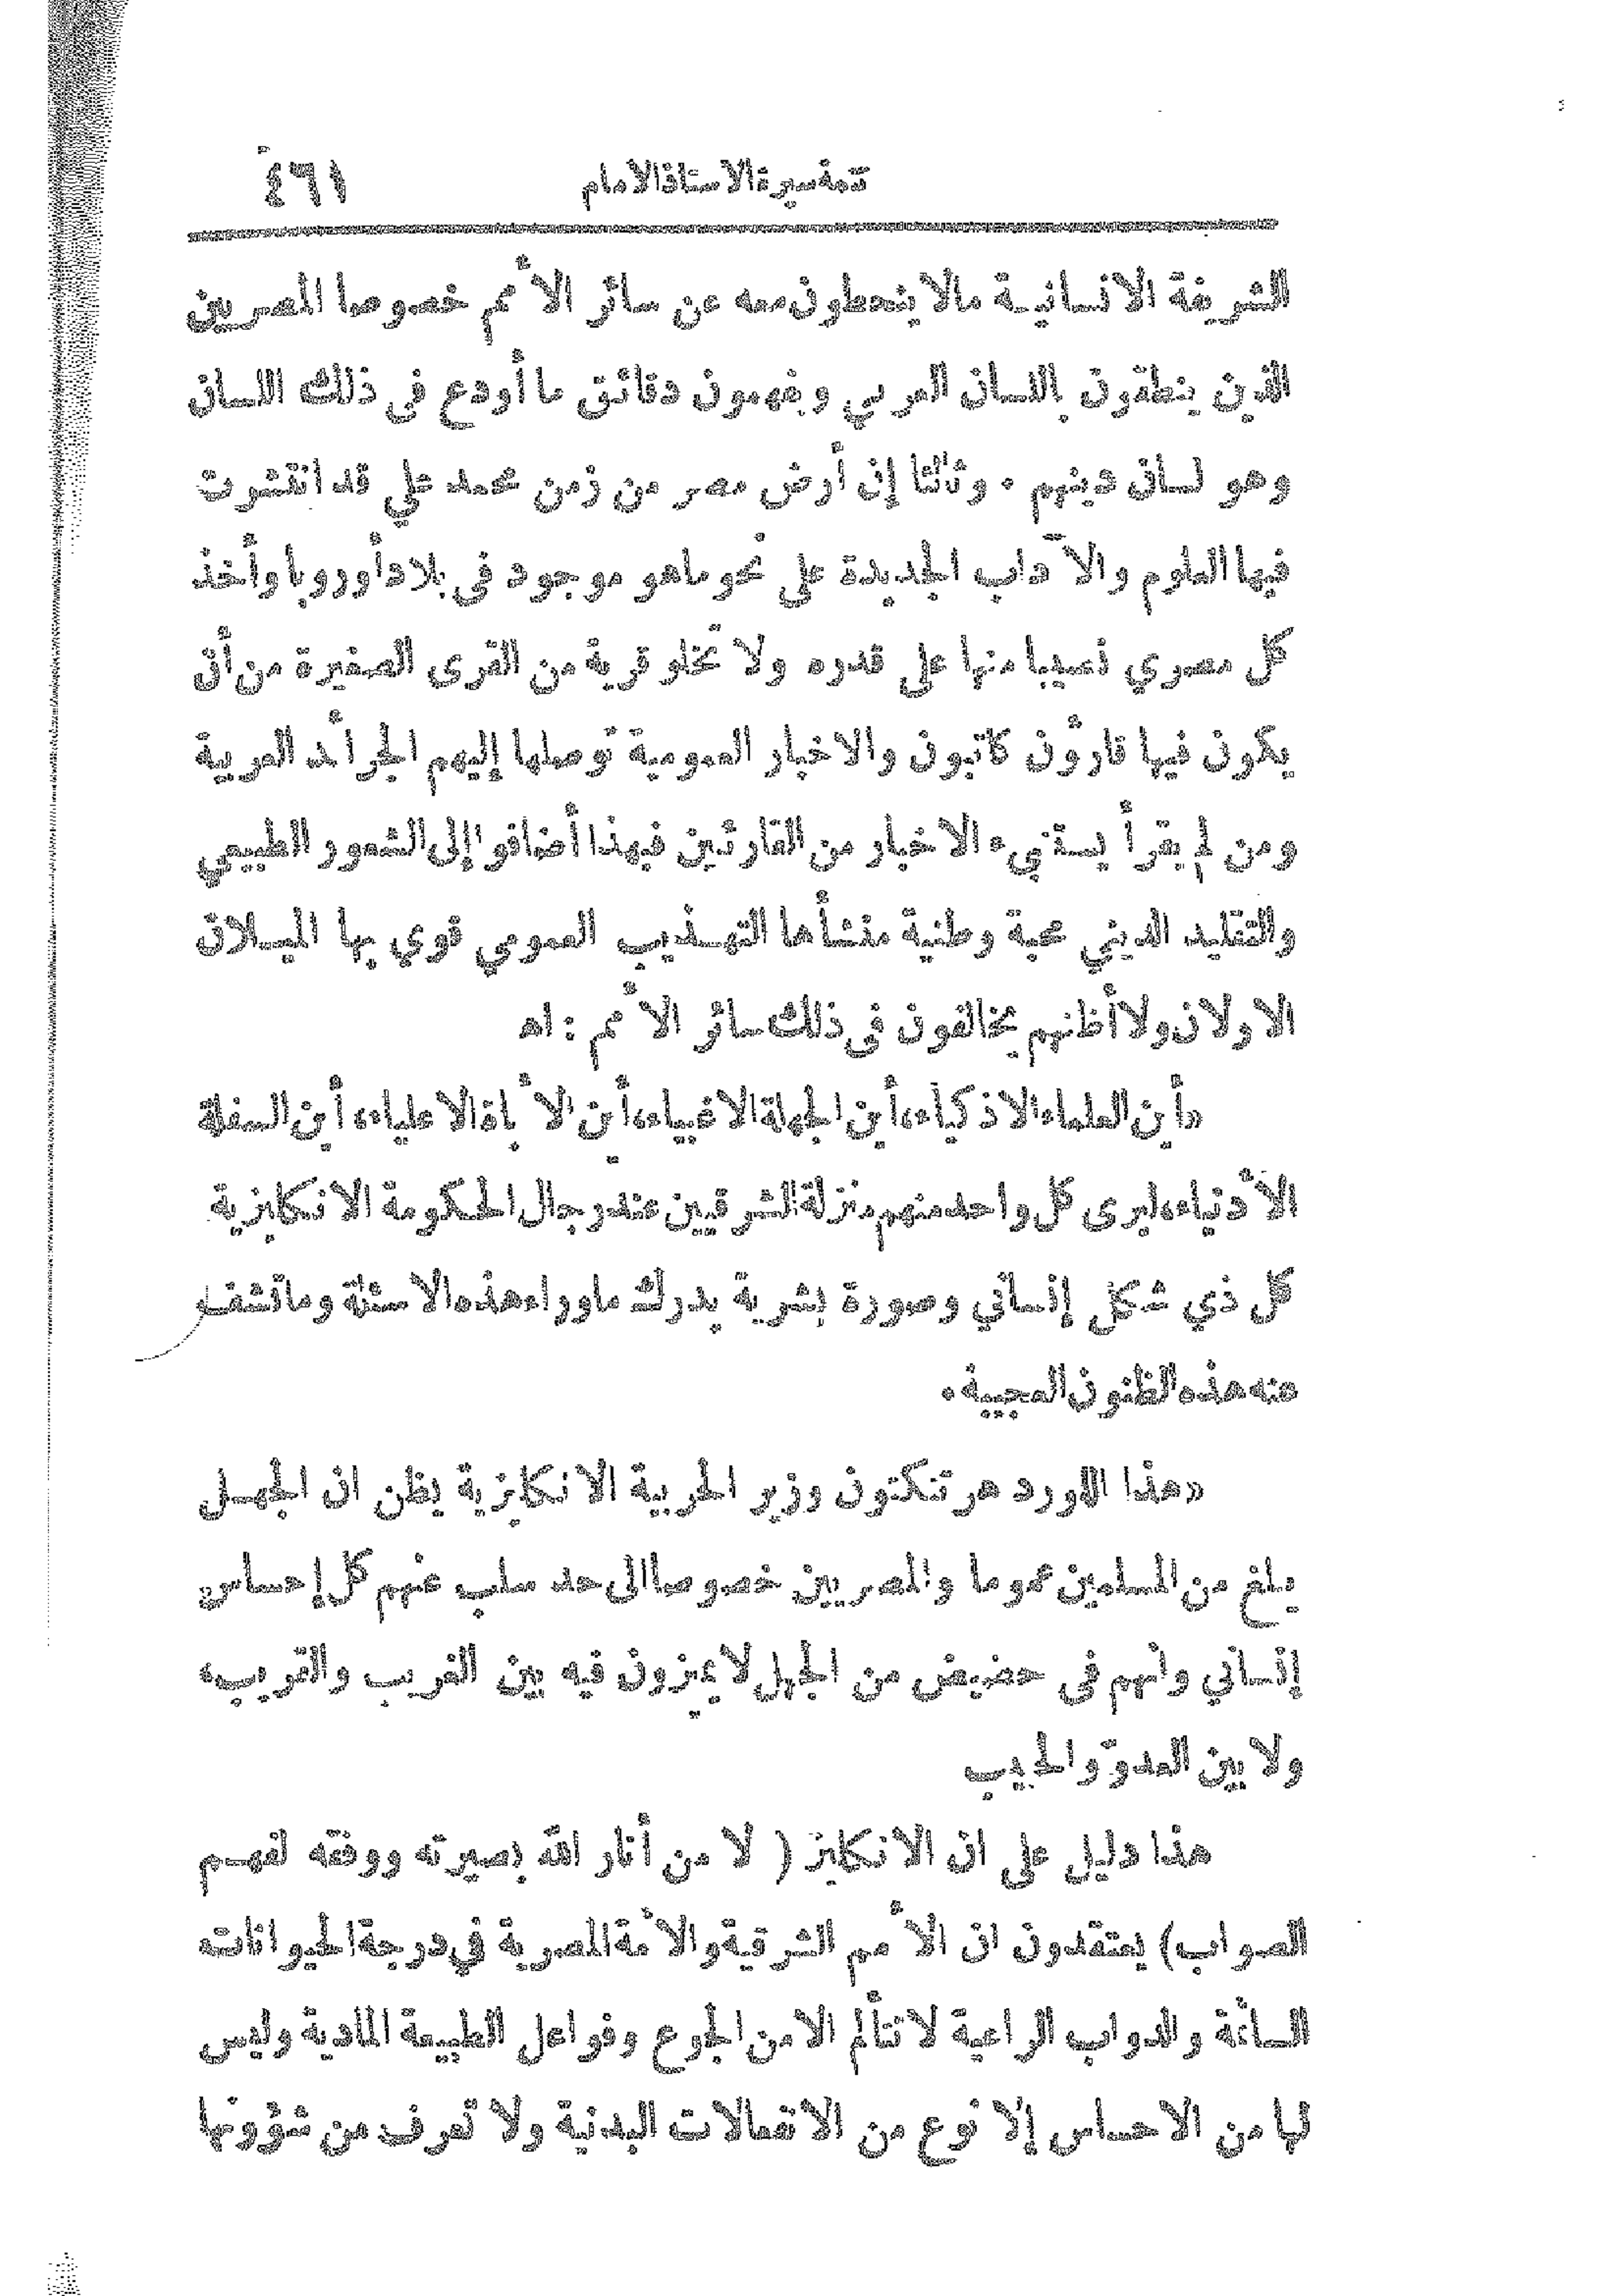 تتمة سيرة الاستاذ الامام ٤٦١
الشريفة الانسانية مالا ينحطون معه عن سائر الأمم خصوصا المصريين
الذين ينطقون باللسان العربي ويفهمون دقائق ما أودع في ذلك اللسان
وهو لسان دينهم . وثالثا إن أرض مصر من زمن محمد علي قد انتشرت
فيها العلوم والآداب الجديدة على نحو ماهو موجود في بلاد أوروبا وأخذ
كل مصري نصيبا منها على قدره ولا تخلو قرية من القرى الصغيرة من أن
يكون فيها قارؤن كاتبون والاخبار العمومية توصلها إليهم الجرائد العربية
ومن لم يقرأ يستنبيء الاخبار من القارئين فبهذا أضافوا إلى الشعور الطبيعي
والتقليد الديني محبة وطنية منشأها التهذيب العمومي قوي بها الميلان
الاولان ولا أظنهم يخالفون في ذلك سائر الأمم : اه
«أين العلماء الاذكياء، أين الجهلة الاغبياء، أين الأباة الاعلياء، أين السفلة
الأدنياء، ليرى كل واحد منهم منزلة الشرقيين عند رجال الحكومة الانكليزية
كل ذي شكل إنساني وصورة بشرية يدرك ماوراء هذه الاسئلة وماتشف
عنه هذه الظنون العجيبة .
«هذا اللورد هرتنكتون وزير الحربية الانكليزية يظن ان الجهل
يبلغ من المسلمين عموما والمصريين خصوصا الى حد سلب عنهم كل إحساس
إنساني وانهم في حضيض من الجهل لا يميزون فيه بين الغريب والقريب،
ولا بين العدو والحبيب
هذا دليل على ان الانكليز ( لا من أنار الله بصيرته ووفقه لفهم
الصواب) يعتقدون ان الأمم الشرقية والأمة المصرية في درجة الحيوانات
السائمة والدواب الراعية لا تتألم الا من الجوع وفواعل الطبيعة المادية وليس
لها من الاحساس إلا نوع من الانفعالات البدنية ولا تعرف من شؤونها